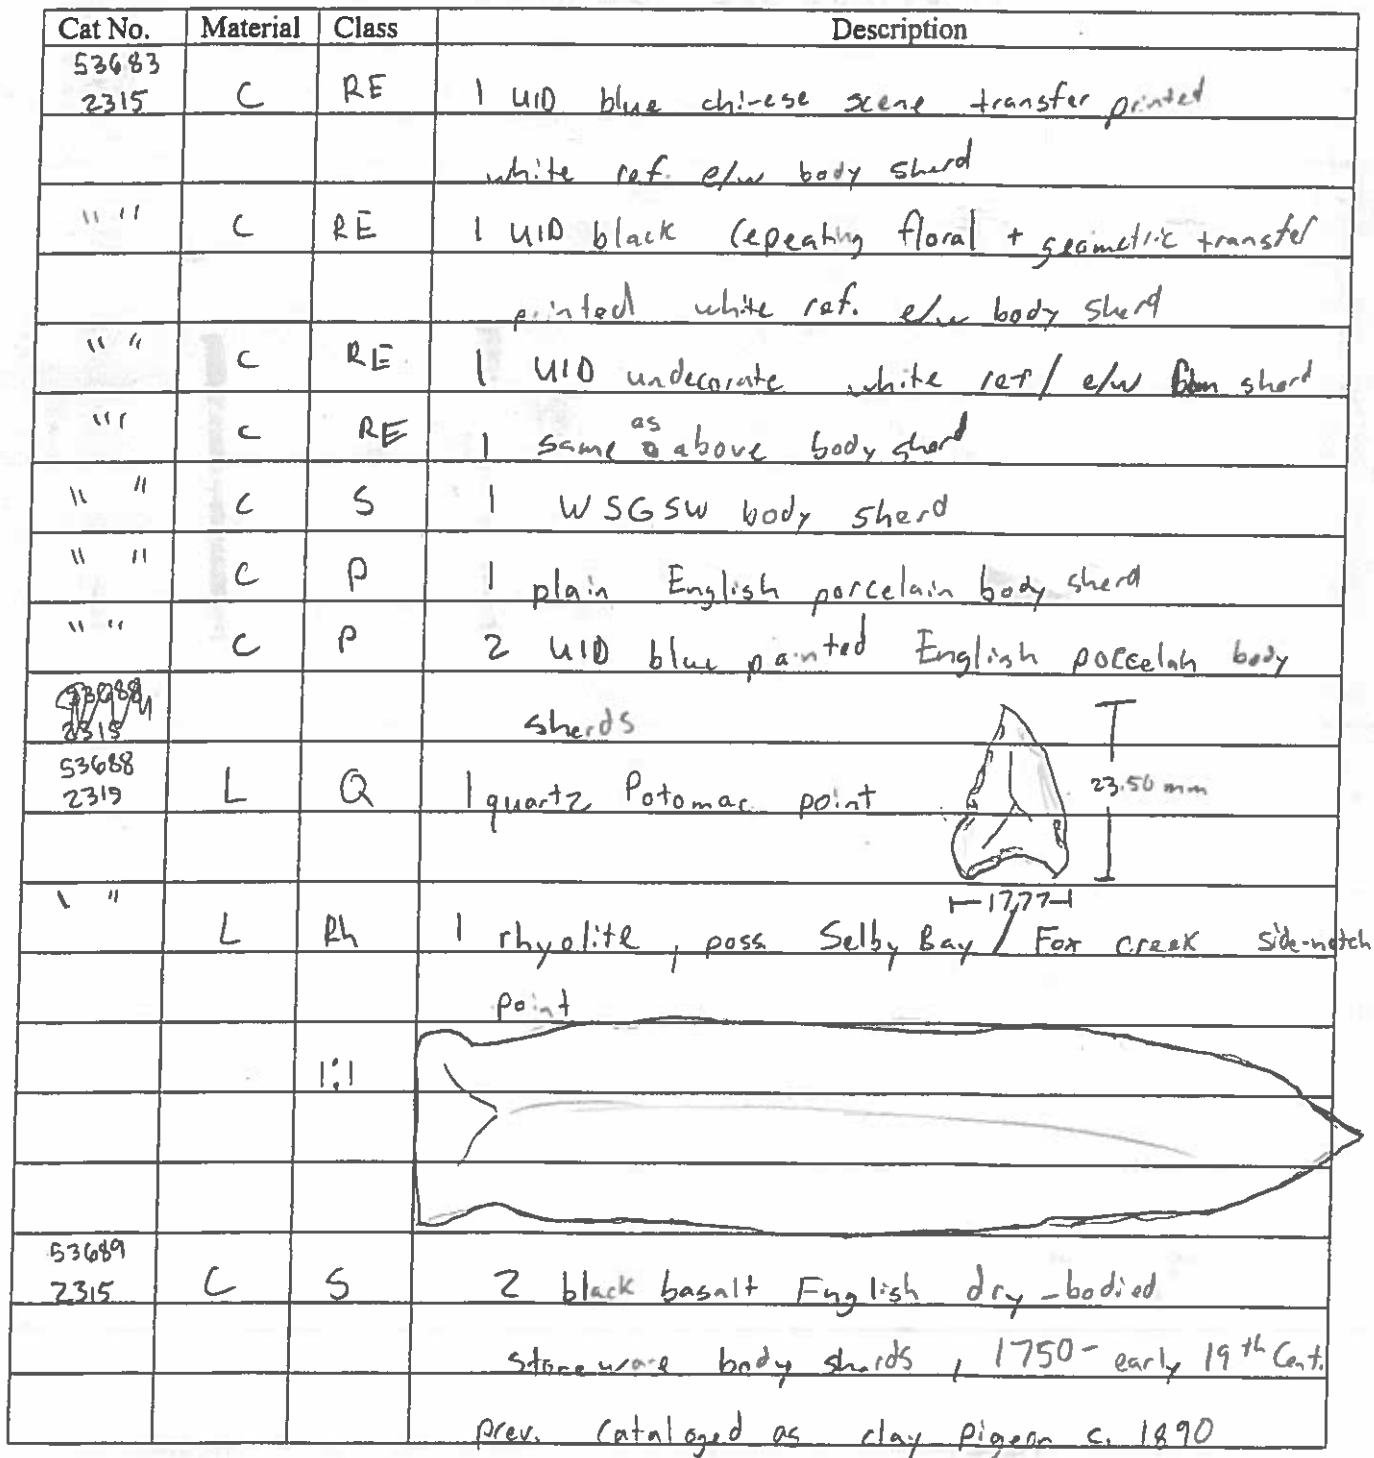 Cat No. Material Class Description
53683
2315 C RE 1 UID blue chinese scene transfer printed
white ref. e/w body sherd
" " C RE 1 UID black repeating floral + geometric transfer
printed white ref. e/w body sherd
" " C RE 1 UID undecorate white ref/ e/w sherd
" " C RE 1 same as above body sherd
" " C S 1 WSGSW body sherd
" " C P 1 plain English porcelain body sherd
" " C P 2 UID blue painted English porcelain body
2315 sherds
53688
2315 L Q 1 quartz Potomac point 23.50 mm
17.77
" " L Rh 1 rhyolite, poss Selby Bay / Fox creek side-notch
point
1:1
53689
2315 C S 2 black basalt English dry-bodied
stoneware body sherds, 1750- early 19th Cent.
prev. cataloged as clay pigeon c. 1890